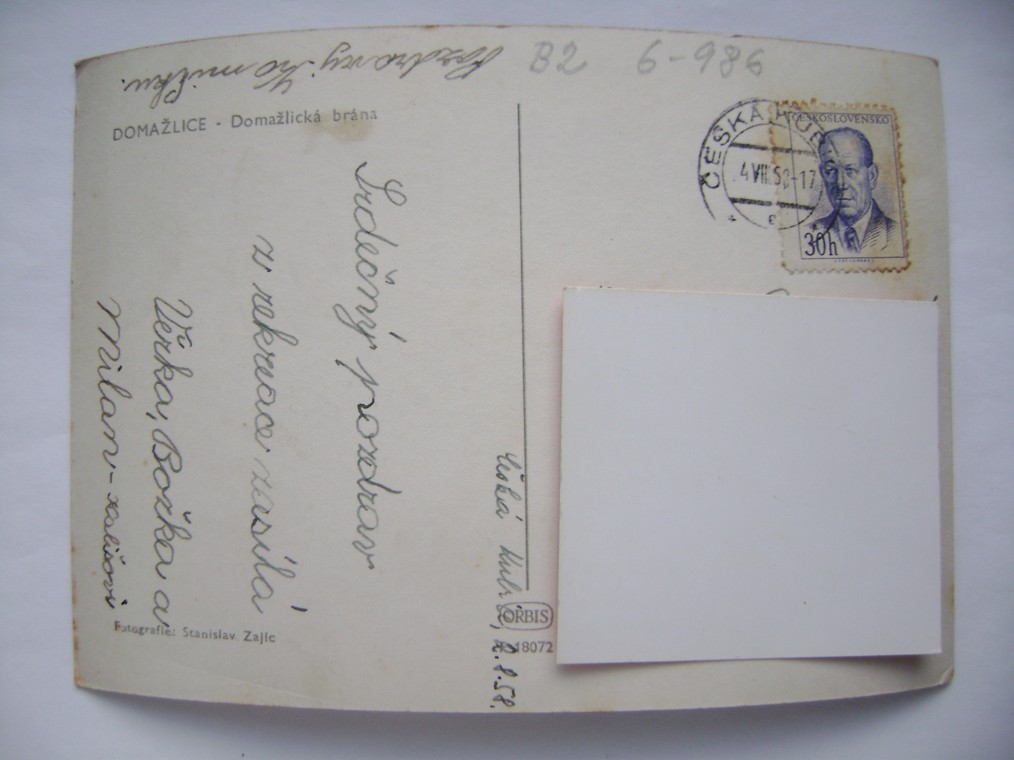 B2 6-986
Pozdravuj
DOMAŽLICE - Domažlická brána
Srdečný pozdrav
z rekreace zasílá
Věrka, Božka a
Milan -
Česká Kubice, 2.8.58.
Fotografie: Stanislav Zajíc
ORBIS
18072
ČESKÁ KUB
4.VIII.58-17
ČESKOSLOVENSKO
30h